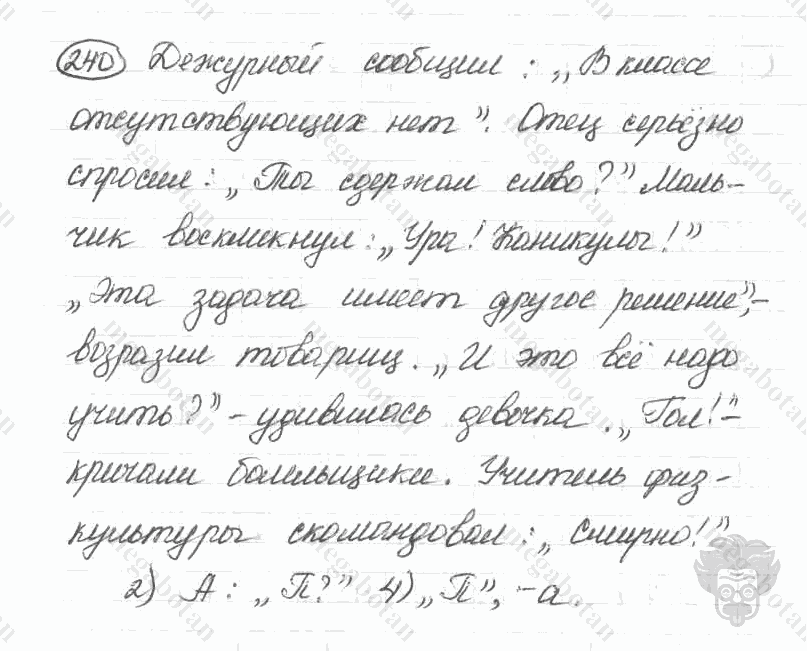 240 Дежурный сообщил: „В классе
отсутствующих нет”. Отец серьёзно
спросил: „Ты сдержал слово?” Маль-
чик воскликнул: „Ура! Каникулы!”
„Эта задача имеет другое решение”, –
возразил товарищ. „И это всё надо
учить?” – удивилась девочка. „Гол!” –
кричали болельщики. Учитель физ-
культуры скомандовал: „Смирно!”
2) А: „П?” 4) „П”, – а.
megabotan